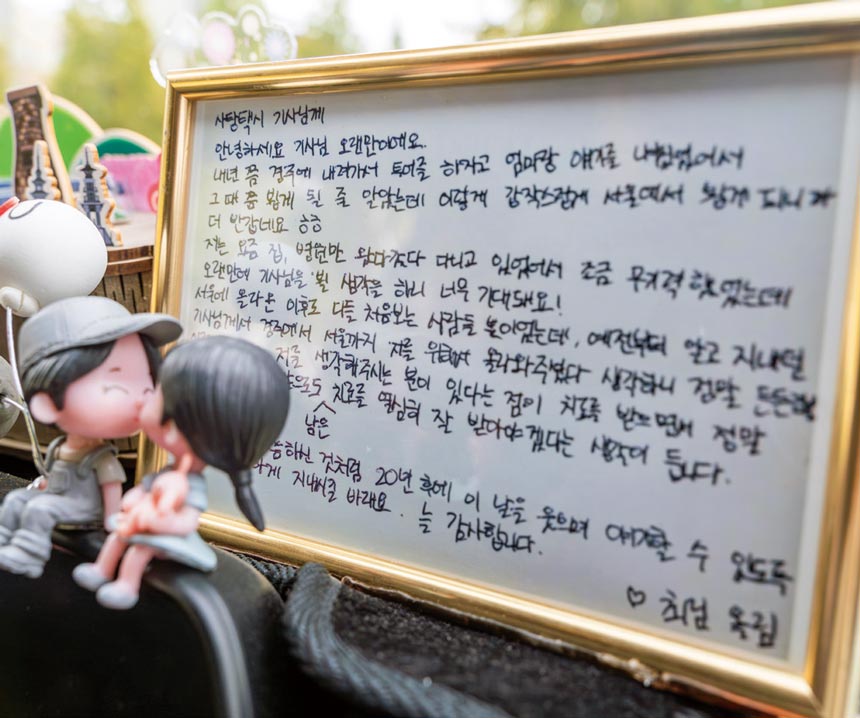 사탕택시 기사님께
안녕하세요 기사님 오랜만이에요.
내년 쯤 경주에 내려가서 투어를 하자고 엄마랑 얘기를 나눴었어서
그 때 쯤 뵙게 될 줄 알았는데 이렇게 갑작스럽게 서울에서 뵙게 되니까
더 반갑네요 ㅎㅎ
저는 요즘 집, 병원만 왔다갔다 다니고 있었어서 조금 무기력 했었는데
오랜만에 기사님을 뵐 생각을 하니 너무 기대돼요!
서울에 올라온 이후로 다들 처음보는 사람들 뿐이었는데, 예전부터 알고 지내던
기사님께서 경주에서 서울까지 저를 위해서 올라와주셨다 생각하니 정말 든든해요
저를 생각해주시는 분이 있다는 점이 치료를 받으면서 정말
남은 치료를 열심히 잘 받아야겠다는 생각이 듭니다.
하신 것처럼 20년 후에 이 날을 웃으며 얘기할 수 있도록
하게 지내시길 바래요. 늘 감사합니다.
♡ 최님 올림